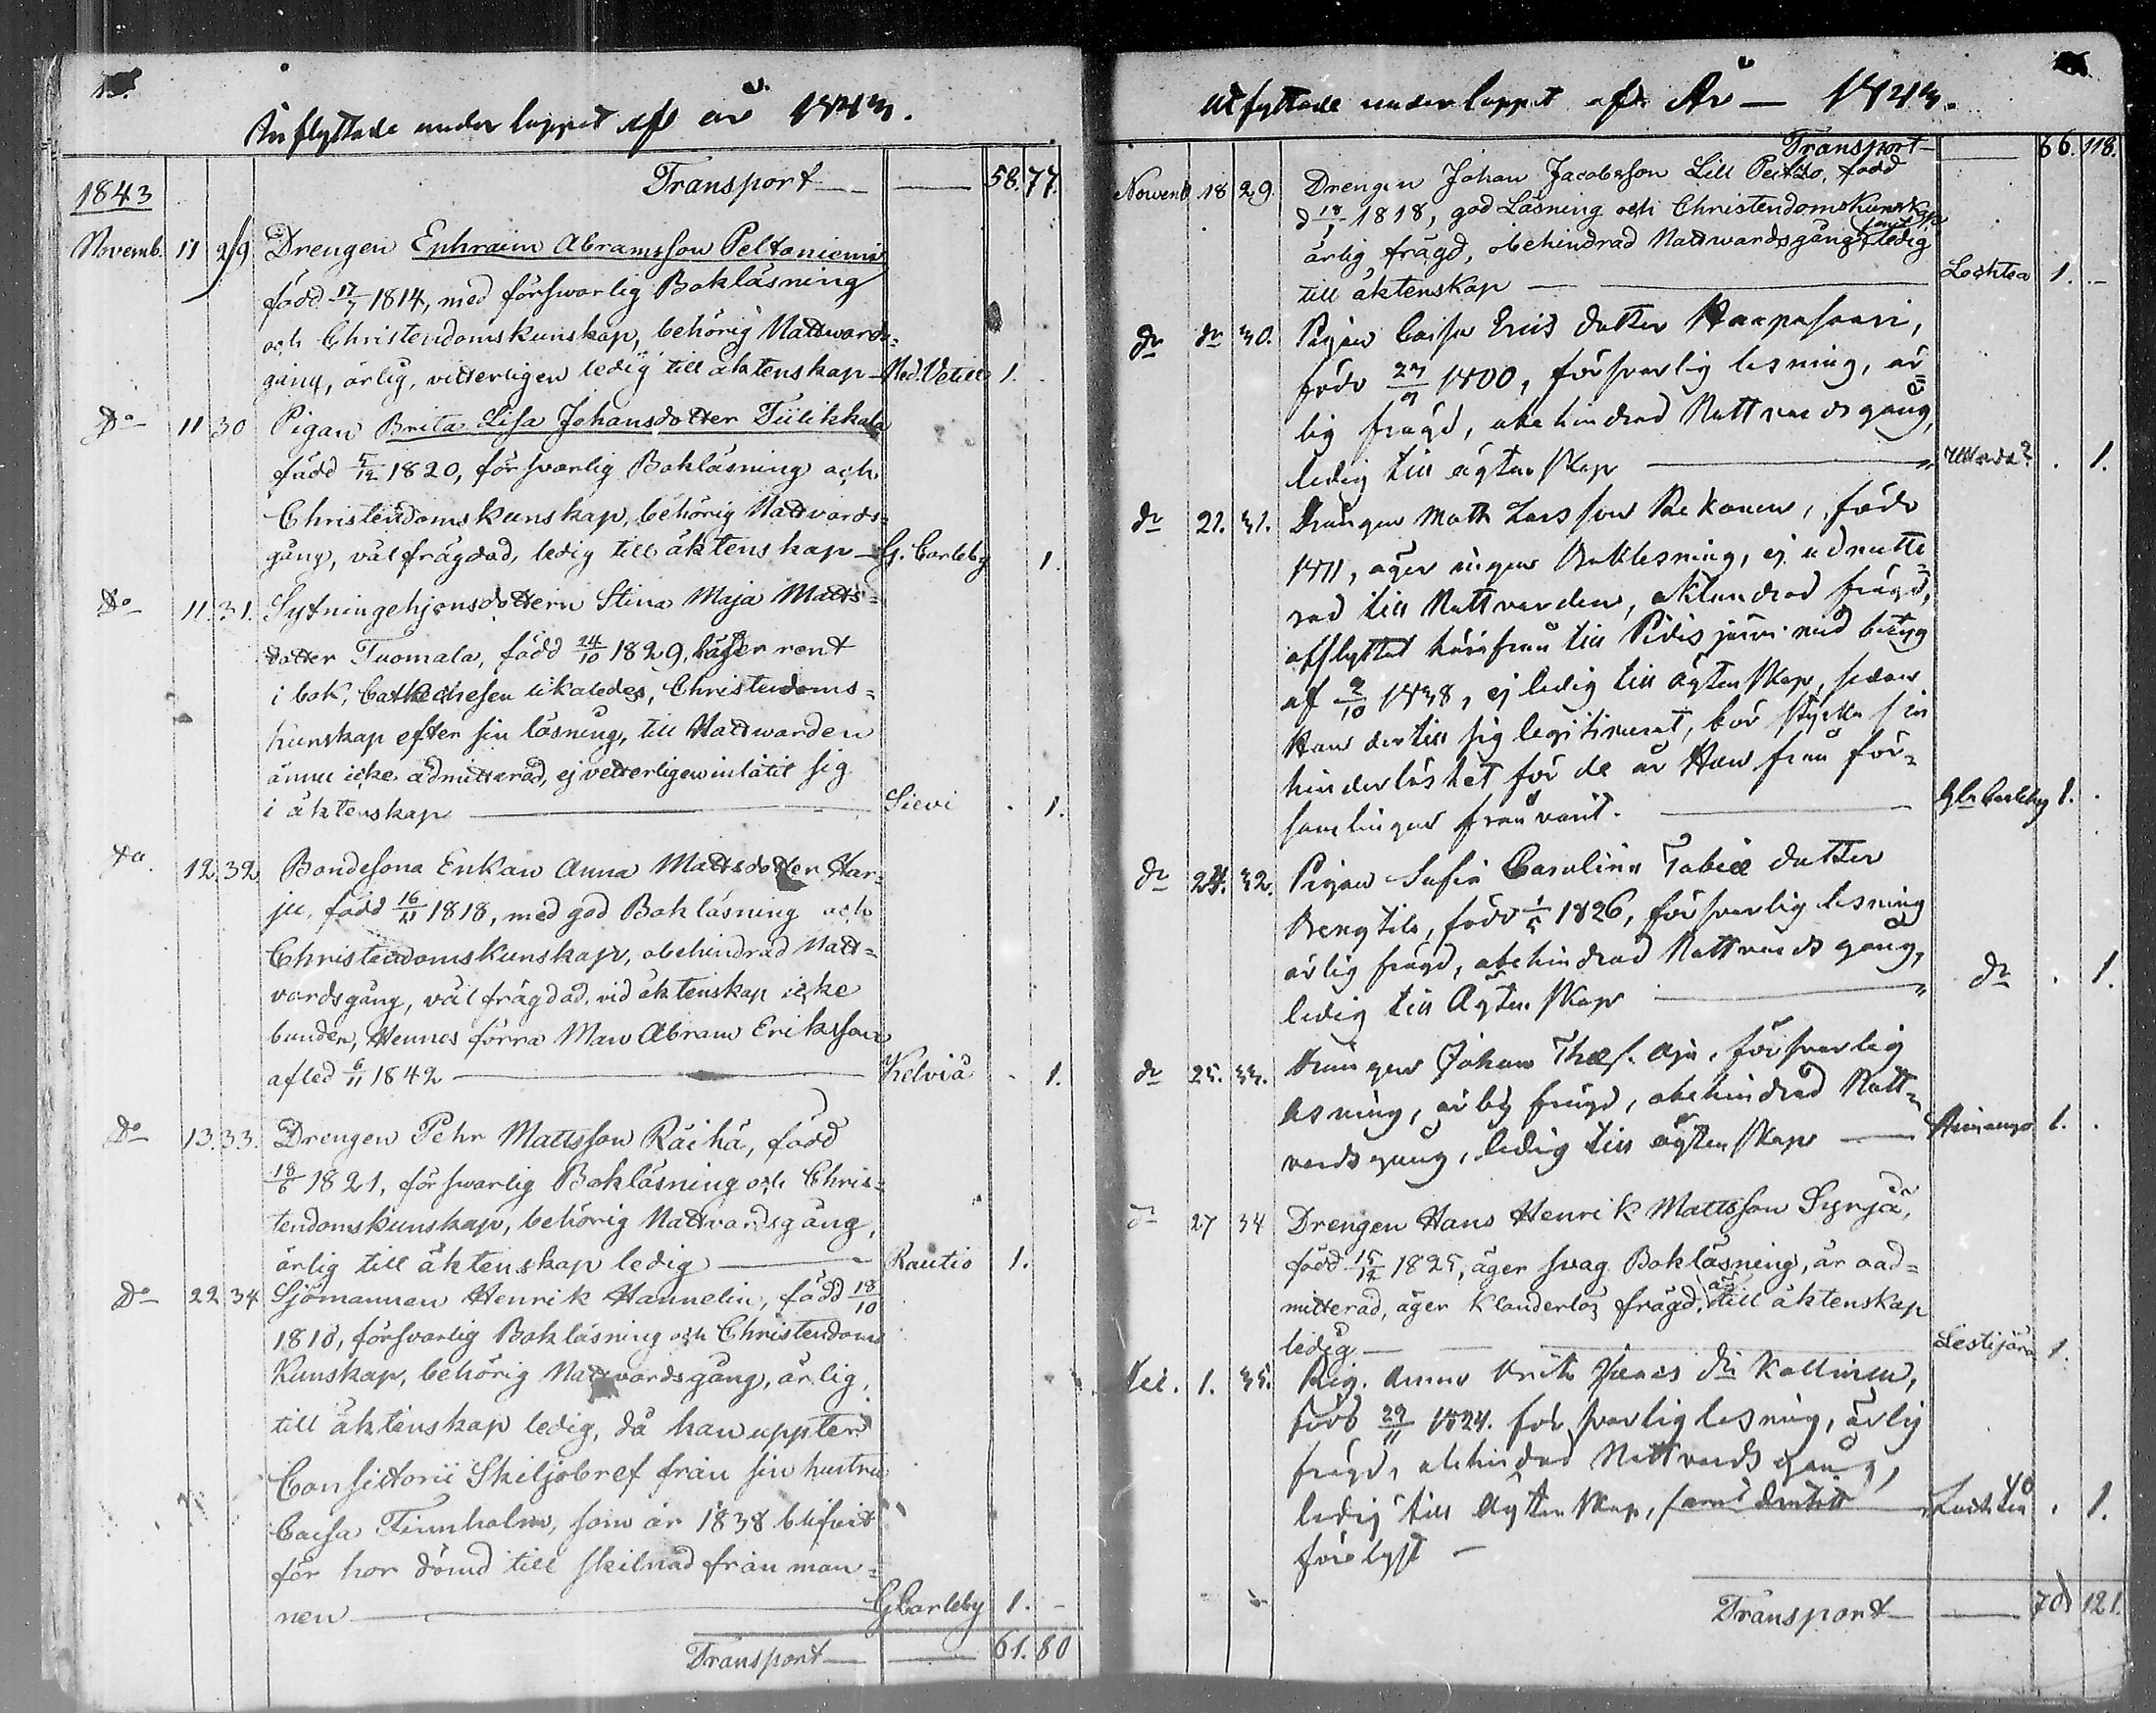 Inflyttade under loppet af år 1843.
Transport — 58. 77.
1843
Novemb. 11 29 Drengen Ephraim Abramsson Peltoniemi
född 17/7 1814, med förswarlig Bokläsning
och Christendomskunskap, behörig Nattwards=
gång, ärlig, vitterligen ledig till äktenskap — Ned. Vetill 1.
Do 11 30 Pigan Brita Lisa Johansdotter Tiilikkala
född 5/12 1820, förswarlig Bokläsning och
Christendomskunskap, behörig Nattvards=
gång, välfrägdad, ledig till äktenskap — G. Carleby 1.
Do 11. 31. Sytningehjonsdottern Stina Maja Matts=
dotter Tuomala, född 24/10 1829, läser rent
i bok, Cathechesen likaledes, Christendoms=
kunskap efter sin läsning, till Nattwarden
ännu icke admitterad, ej vetterligen inlåtit sig
i äktenskap — Sievi . 1.
Do. 12. 32 Bondesona Enkan Anna Mattsdotter Har=
ju, född 16/11 1818, med god Bokläsning och
Christendomskunskap, obehindrad Natt=
vardsgång, välfrägdad, vid äktenskap icke
bunden, Hennes förra Man Abram Eriksson
afled 6/11 1842 — Kelviå . 1.
Do 13. 33. Drengen Pehr Mattsson Räihä, född
18/6 1821, förswarlig Bokläsning och Chris=
tendomskunskap, behörig Nattvardsgång,
ärlig till äktenskap ledig — Rautio 1.
Do 22 34 Sjömannen Henrik Hannelin, född 18/10
1810, försvarlig Bokläsning och Christendoms
Kunskap, behörig Nattvardsgång, ärlig,
till äktenskap ledig, då han uppter
Consistorii Skiljobref från sin hustru
Caisa Finnholm, som år 1838 blifvit
för hor dömd till skilnad från man=
nen — GCarleby 1. -
Transport — 61. 80
Utflyttade under loppet af År — 1843.
Transport — 66. 118.
Novemb 18 29. Drengen Johan Jacobsson Lill Peitso, född
d 18/1 1818, god Läsning och Christendomskunskap
ärlig frägd, obehindrad Nattwardsgång samt ledig
till äktenskap — Lochteå 1. -
do do 30. Pigan Caisa Eriks dotter Haapasaari,
född 27/9 1800, försvarlig lesning, är=
lig frägd, obehindrad Nattvards gång,
ledig till ägtenskap — . 1.
do 21. 31. Drängen Matts Larsson Pekonen, född
1811, äger ingen Boklesning, ej admitte=
rad till Nattvarden, oklandrad frägd,
afflyttat härifrån till Pidisjärvi med betyg
af 2/10 1838, ej ledig till ägtenskap, sedan
Han dertill sig legitimerat, bör styrka sin
hinderlöshet för de år Han från för=
samlingen från varit. — Gla Carleby 1. .
do 24. 32. Pigan Sofia Carolina Tobiæ dotter
Bengtila, född 1/5 1826, försvarlig lesning
ärlig frägd, obehindrad Nattvards gång,
ledig till Ägtenskap — do . 1.
do 25. 33. Drängen Johan Thæs. Aja, försvarlig
lesning, ärlig frägd, obehindrad Natt=
vards gång, ledig till ägtenskap — Himango 1. .
do 27 34 Drengen Hans Henrik Mattsson Syrjä,
född 15/12 1825, äger svag Bokläsning, är oad=
mitterad, äger klanderlös frägd, är till äktenskap
ledig — Lestijärvi 1.
Dec. 1. 35. Pig. Anna Brita Jonas dr Kallinen,
född 29/11 1824. försvarlig lesning, ärlig
frägd, obehindrad Nattvards gång,
ledig till Ägtenskap, samt dertill — Lochteå . 1.
förelyst —
Transport — 70 121.